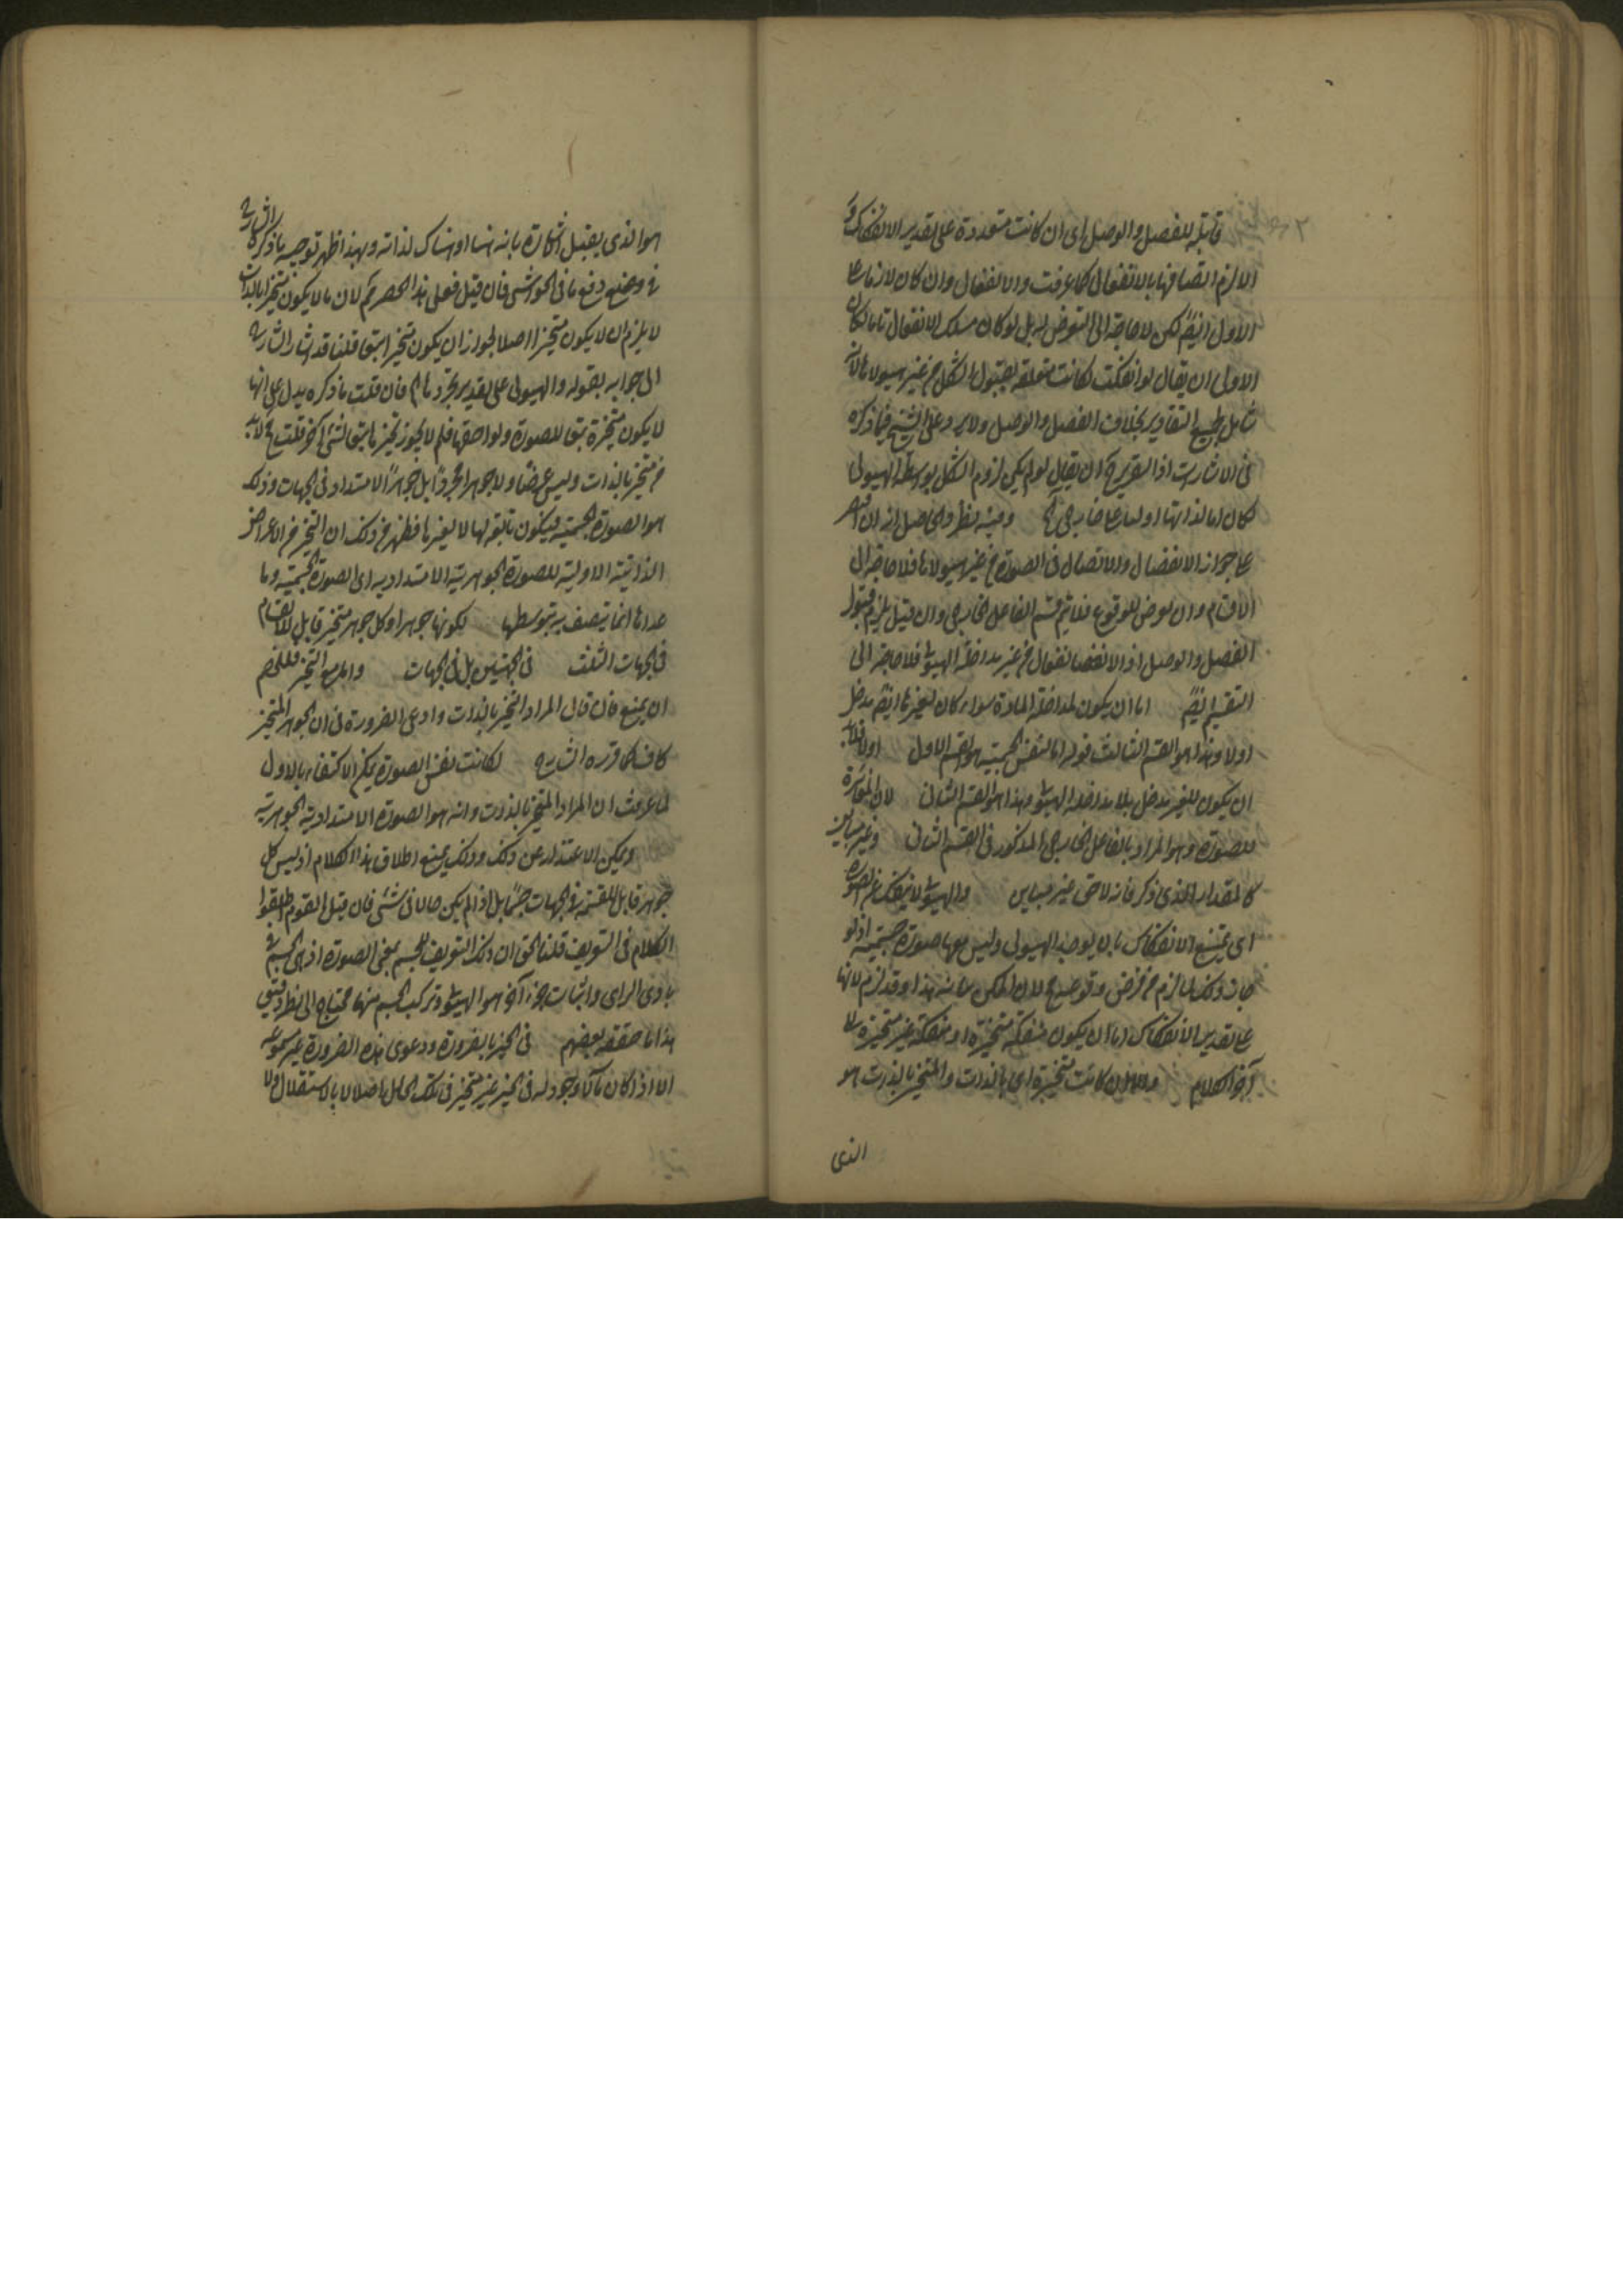 قابلة للفصل والوصل اى ان كانت متعددة على تقدير الانفكاك و
الا لزم اتصافها بالانفعال كما عرفت والانفعال وان كان لازما على
الاول ايضا لكن لا حاجة الى التعرض له بل لو كان مسلك الانفعال تاما لكان
الاولى ان يقال لو انفكت لكانت متعلقة بقبول الشكل من غير هيولاها لانه
شامل لجميع التقادير بخلاف الفصل والوصل ولا يرد على الشيخ فيما ذكره
فى الاشارات اذ التقرير ان يقال لو لم يكن لزوم الشكل بواسطة الهيولى
لكان اما لذاتها او لها خارجى وفيه نظر والحاصل انه ان اقتصر
على جواز الانفصال والاتصال فى الصورة من غير هيولاها فلا حاجة الى
الاقسام وان تعرض للوقوع فلا يتم قسم الفاعل الخارجى وان قيل يلزم قبول
الفصل والوصل اذ الانفصال انفعال من غير مداخلة الهيولى فلا حاجة الى
التقسيم ايضا اما ان يكون لمداخلة المادة سواء كان لغيرها ايضا مدخل
اولا وهذا هو القسم الثالث قوله اما لنفس الجسمية هو القسم الاول اولا فلابد
ان يكون للغير مدخل بلا مداخلة الهيولى وهذا هو القسم الثانى لان المؤثرة
للصورة وهو المراد بالفاعل الخارجى المذكور فى القسم الثانى وغير مباين
كالمقدار الذى ذكر فانه لاحق غير مباين والهيولى لا ينفك عن الصورة
اى يمتنع الانفكاك بان لا يوجد الهيولى وليس معها صورة جسمية اذ لو
جاز ذلك لما لزم من فرض وقوعه مح لان الممكن شانه هذا وقد لزم لانها
على تقدير الانفكاك اما ان يكون منفكة متحيزة او منفكة غير متحيزة الى
آخر الكلام والا وان كانت متحيزة اى بالذات والمتحيز بالذات هو
الذى
هو الذى يقبل الاشارة بانه هنا او هناك لذاته وبهذا ظهر توجيه ما ذكره الشارح
فى وضع دفع ما فى الحواشى فان قيل فعلى هذا الحصر مم لان ما لا يكون متحيزا بالذات
لا يلزم ان لا يكون متحيزا اصلا لجواز ان يكون متحيزا بتبع قلنا قد اشار الشارح
الى جوابه بقوله والهيولى على تقدير تجردها فان قلت ما ذكره يدل على انها
لا يكون متحيزة بتبع للصورة ولواحقها فلم لا يجوز تحيزها بتبع لشئ آخر قلت لابد
من متحيز بالذات وليس عرضا ولا جوهرا مجردا بل جوهرا الامتداد فى الجهات وذلك
هو الصورة الجسمية فيكون تابعة لها لا لغيرها فظهر من ذلك ان التحيز من الاعراض
الذاتية الاولية للصورة الجوهرية الامتدادية اى الصورة الجسمية وما
عداها انما يتصف به بتوسطها لكونها جوهرا وكل جوهر متحيز قابل للانقسام
فى الجهات الثلث فى الجهتين بل فى الجهات وان التحيز فللخصم
ان يمنع فان قال المراد التحيز بالذات وادعى الضرورة فى ان الجوهر المتحيز
كاف كما قرره الشارح لكانت نفس الصورة يمكن الاكتفاء بالاول
لما عرفت ان المراد المتحيز بالذات وانه هو الصورة الامتدادية الجوهرية
ويمكن الاعتذار عن ذلك وذلك يمنع اطلاق هذا الكلام اذ ليس كل
جوهر قابل للقسمة فى الجهات جسما بل اذا لم يكن حالا فى شئ فان قيل القوم اطلقوا
الكلام فى التعريف قلنا الحق ان ذلك التعريف للجسم بمعنى الصورة اذ هى الجسم فى
بادى الراى واثبات جزء آخر هو الهيولى وتركب الجسم منها محتاج الى نظر دقيق
هذا ما حققه بعضهم فى الحيز بالضرورة ودعوى هذه الضرورة غير مسموعة
الا اذا كان ما لا وجود له فى الحيز غير متحيز فى تلك الحال اصلا لا بالاستقلال ولا